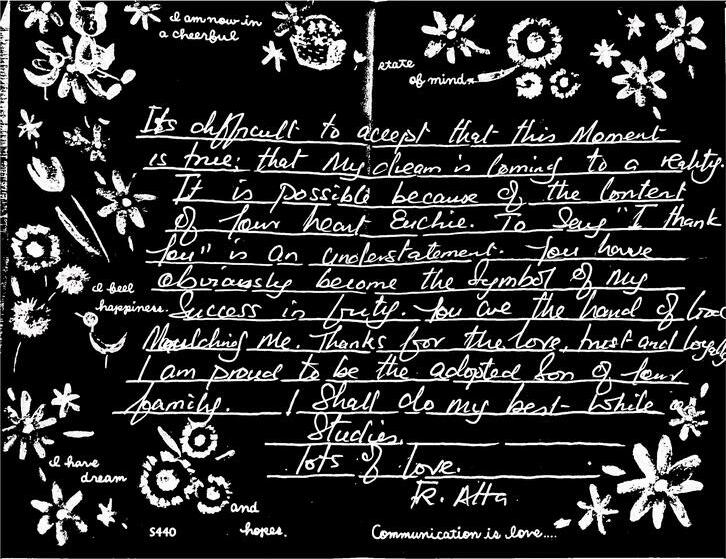 I am now in
a cheerful
state
of mind
It's difficult to accept that this Moment
is true; that My dream is coming to a reality.
It is possible because of the content
of your heart Euchie. To Say "I thank
You" is an understatement. You have
obviously become the Symbol of My
Success in You are the hand of God
Moulding Me. Thanks for the love, trust and loyalty
I am proud to be the adopted Son of Your
family. I Shall do My best while
Studies.
lots of love.
R. Atta
I feel
happiness.
I have
dream
and
hopes.
S440
Communication is love....